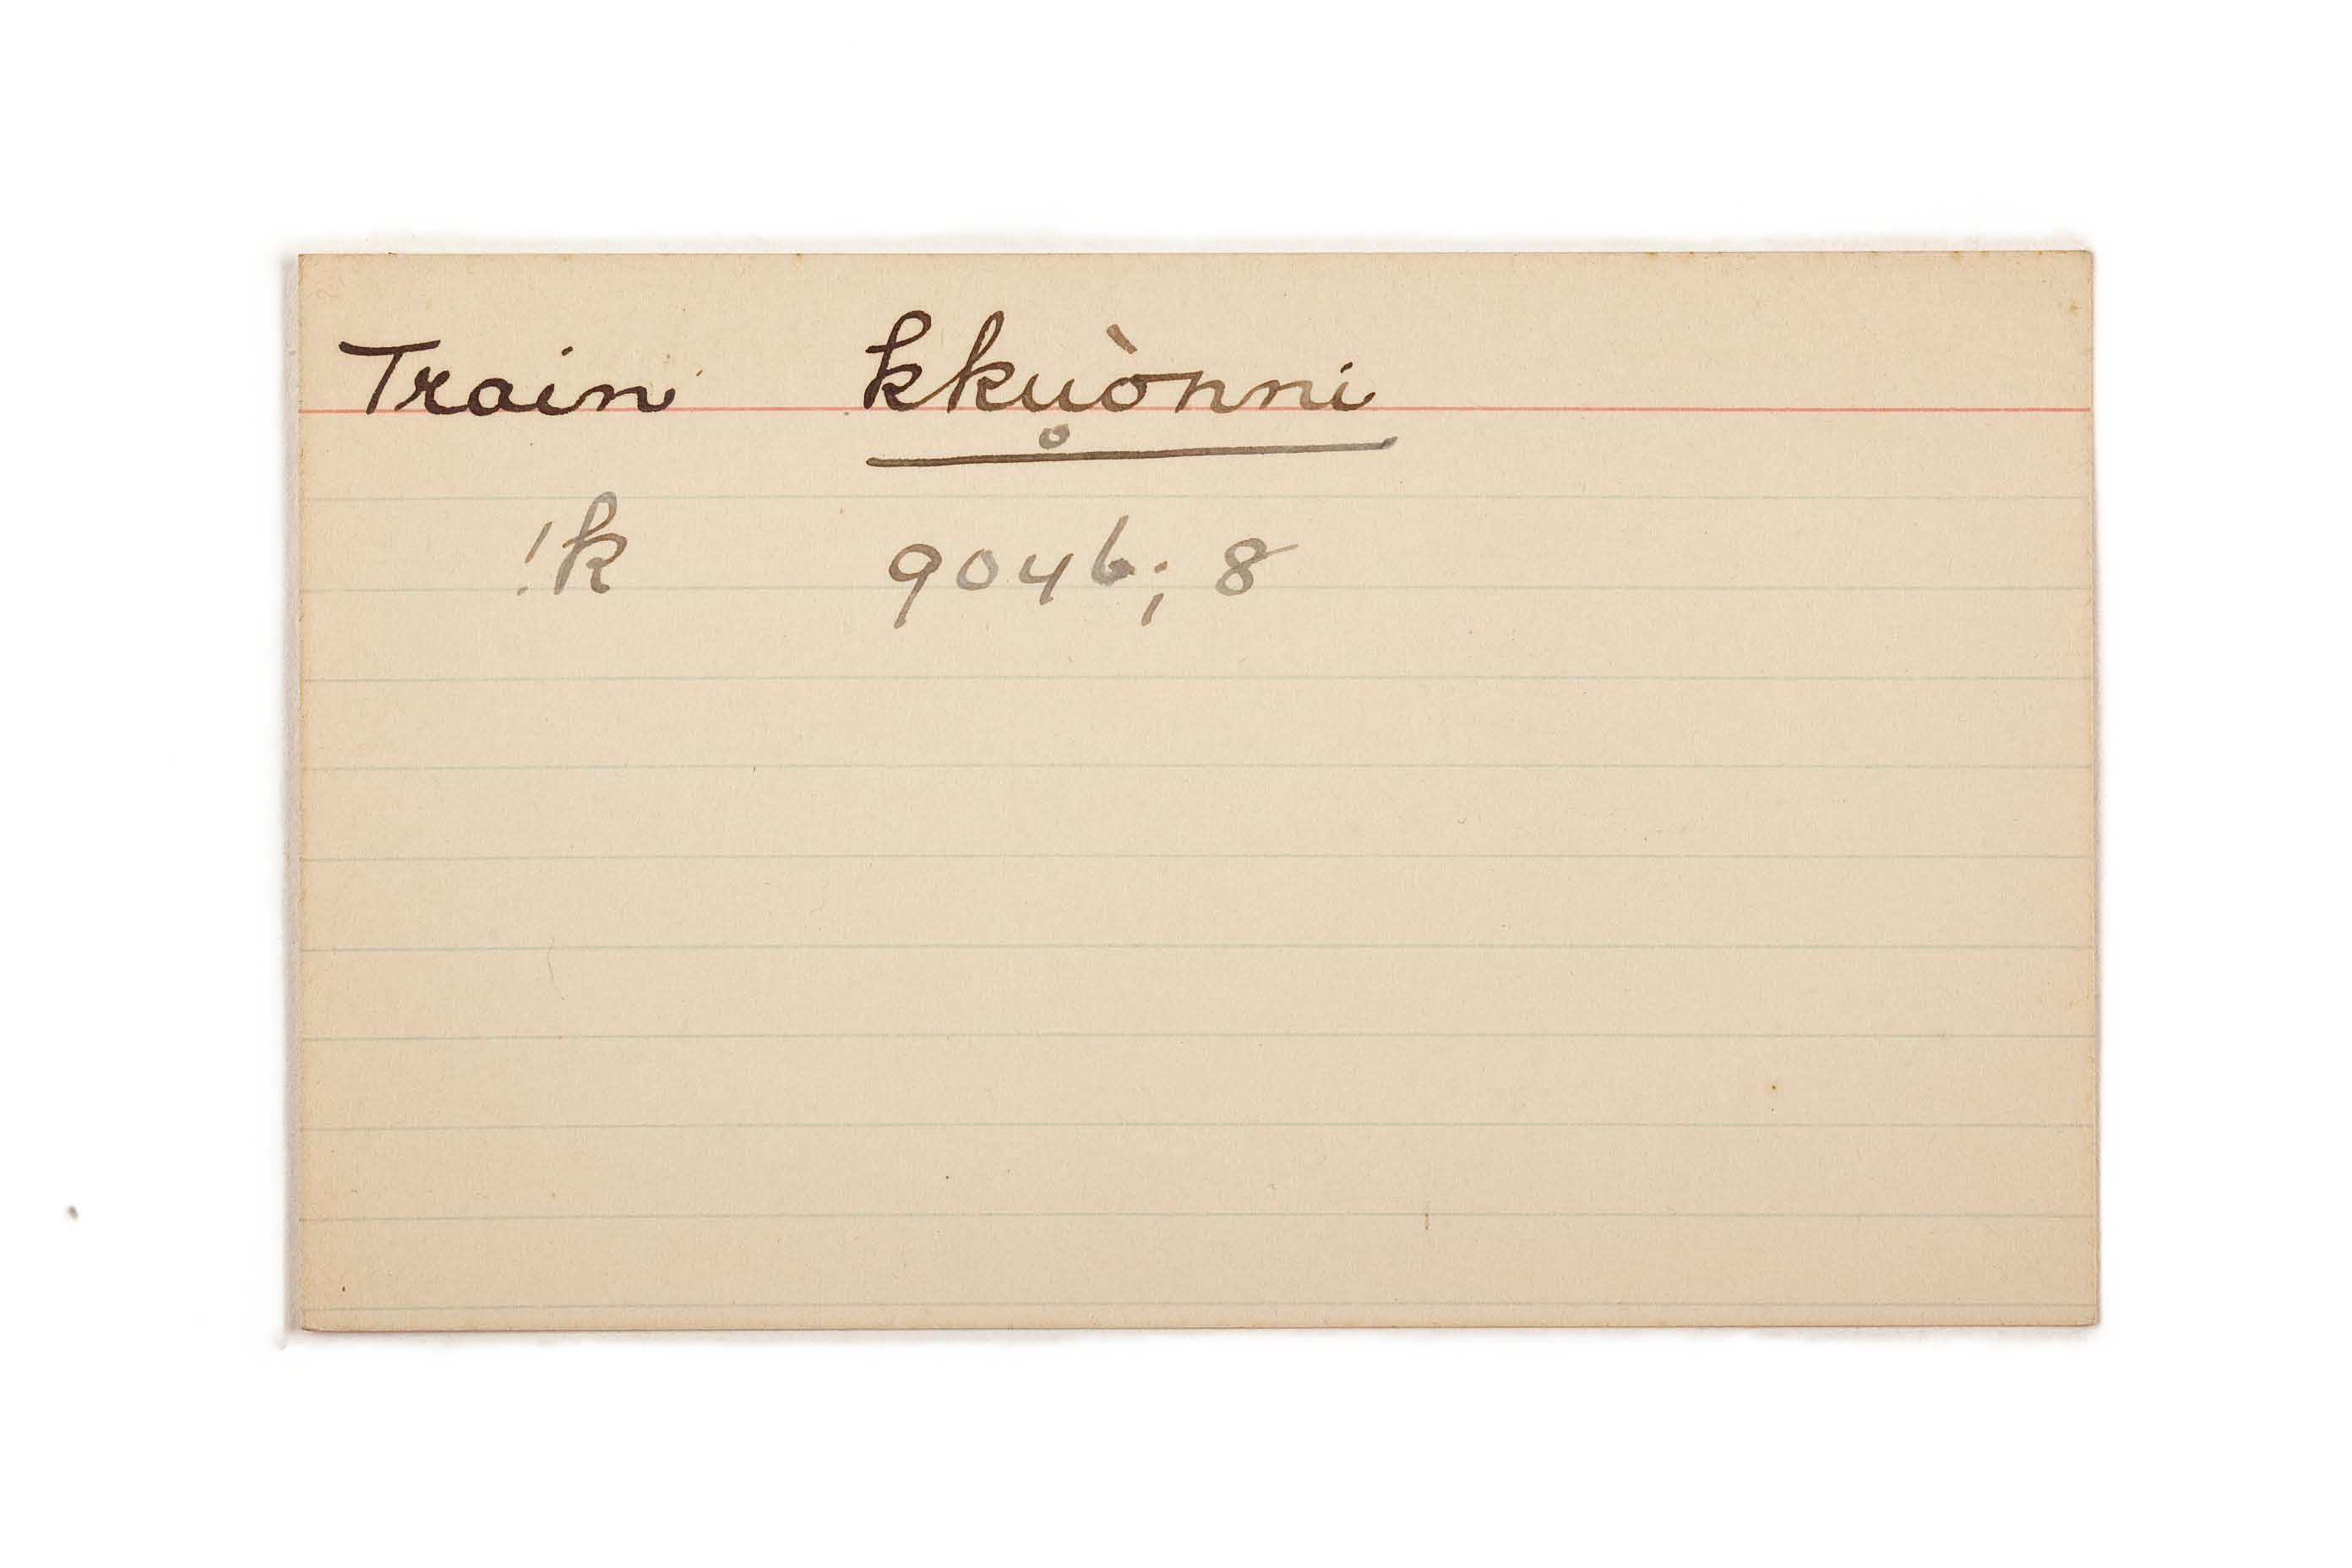 Train kku̥ònni
!k 9046; 8